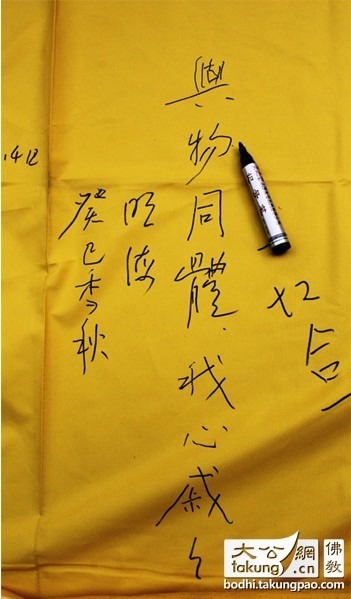 與物同體，我心戚々
明海
癸巳季秋
大公網 佛教
takung.cn
bodhi.takungpao.com